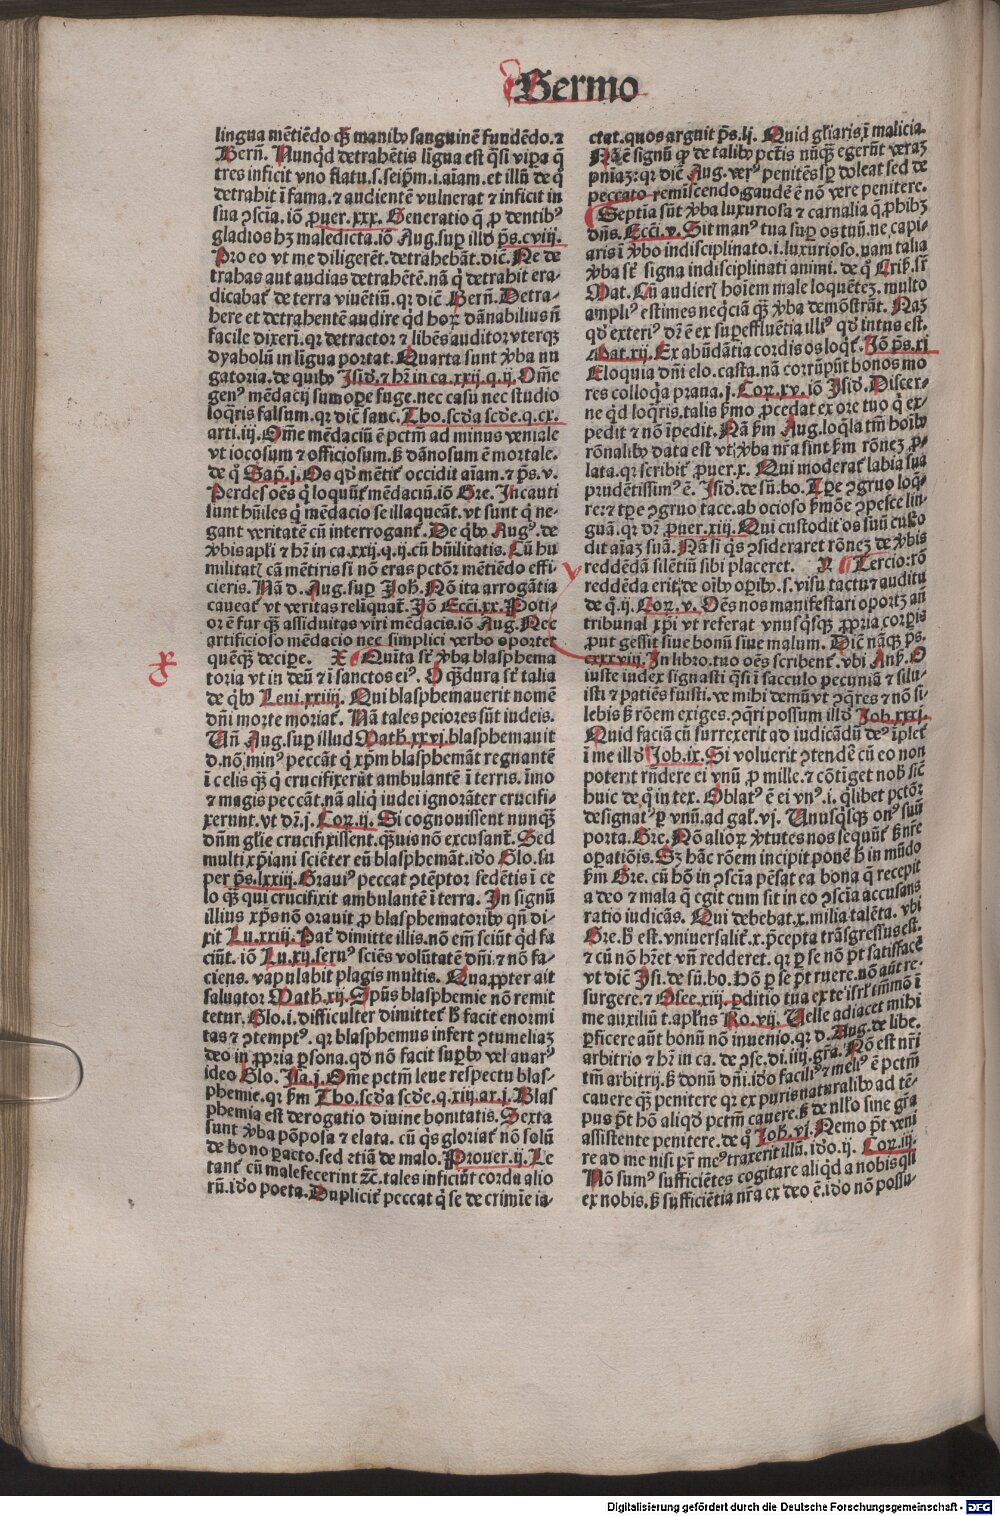 Sermo
lingua mẽtiẽdo qȝ manibꝰ sanguinẽ fundẽdo. ⁊
Bern̄. Nunqd detrahẽtis lĩgua est q̃si vip̱a q̃
tres inficit vno flatu. s. seip̄m. i. aĩam. et illũ de q̊
detrahit ĩ fama. ⁊ audientẽ vulnerat ⁊ inficit in
sua ꝯscĩa. iõ ꝓuer. xxx. Generatio q̃ ꝓ dentibꝰ
gladios hȝ maledicta. iõ Aug. sup̱ illd̓ p̄s. cviij.
Pro eo vt me diligerẽt. detrahebãt. dic̃. Ne de
trahas aut audias detrahẽtẽ. nã q̓ detrahit era-
dicabat̃ de terra viuẽtiũ. qꝛ dic̃ Bern̄. Detra-
here et detrahentẽ audire qd̓ hoꝝ dãnabilius ñ
facile dixeri. qꝛ detractor ⁊ libẽs auditor vterqȝ
dyabolũ in lĩgua portat. Quarta sunt v̓ba nu
gatoria. de quibꝰ Isid. ⁊ hr̃ in ca. xxij. q. ij. Om̃e
genꝰ mẽdacij sumop̱e fuge. nec casu nec studio
loq̃ris falsum. qꝛ dic̃ sanc. Tho. scd̓a scd̓e. q. cx.
arti. iij. Om̃e mẽdaciũ ẽ pctm̃ ad minus veniale
vt iocosum ⁊ officiosum. sȝ dãnosum ẽ mortale.
de q̊ Sap̱. j. Os qd̓ mẽtit̃ occidit aĩam. ⁊ p̄s. v.
Perdes oẽs q̓ loquũt̃ mẽdaciũ. iõ Gre. Incauti
sunt hũiles q̓ mẽdacio se illaqueãt. vt sunt q̓ ne-
gant veritatẽ cũ interrogant̃. De q̓bꝰ Augꝰ. de
v̓bis apl̃i ⁊ hr̃ in ca. xxij. q. ij. cũ hũilitatis. Cũ hu
militat̃ cã mẽtiris si nõ eras pctõr mẽtiẽdo effi-
cieris. Nã d̓. Aug. sup̱ Joh̃. Nõ ita arrogãtia
caueat̃ vt veritas reliquat̃. Iõ Ecci. xx. Poti-
or ẽ fur qȝ assiduitas viri mẽdacis. iõ Aug. Nec
artificioso mẽdacio nec simplici verbo oportet
quẽqȝ decip̱e. X Quĩta st̃ v̓ba blasphema
toria vt in deũ ⁊ ĩ sanctos eiꝰ. O qȝdura st̃ talia
de q̓bꝰ Leui. xxiiij. Qui blasphemauerit nomẽ
dñi morte moriat̃. Nã tales peiores sũt iudeis.
Vñ Aug. sup̱ illud Math̃. xxvi. blasphemauit
d. nõ minꝰ peccãt q̓ xp̃m blasphemãt regnantẽ
ĩ celis qȝ q̓ crucifixerũt ambulantẽ ĩ terris. ĩmo
⁊ magis peccãt. nã aliq̓ iudei ignorãter crucifi-
xerunt. vt dr̃. j. Coꝝ. ij. Si cognouissent nunqȝ
dñm gl̃ie crucifixissent. qȝuis nõ excusant̃. Sed
multi xp̃iani sciẽter eũ blasphemãt. id̓o Glo. su
per p̄s. lxxiij. Grauiꝰ peccat ꝯtẽptor sedẽtis ĩ ce
lo qȝ qui crucifixit ambulantẽ ĩ terra. In signũ
illius xp̃s nõ orauit ꝓ blasphematoribꝰ qñ di-
xit Lu. xxiij. Pat̃ dimitte illis. nõ em̃ sciũt qd̓ fa
ciũt. iõ Lu. xij. seruꝰ sciẽs volũtatẽ dñi. ⁊ nõ fa-
ciens. vapulabit plagis multis. Quaꝓpter ait
saluator Math̃. xij. Spũs blasphemie nõ remit
tetur. Glo. i. difficulter dimittet̃ h̓ facit enormi
tas ⁊ ꝯtemptꝰ. qꝛ blasphemus infert ꝯtumeliaȝ
deo in ꝓpria p̱sona. qd̓ nõ facit sup̱bꝰ vel auarꝰ
ideo Glo. Isa. j. Om̃e pctm̃ leue respectu blas-
phemie. qꝛ ẜm Tho. scd̓a scd̓e. q. xiij. ar. j. Blas
phemia est derogatio diuine bonitatis. Sexta
sunt v̓ba põposa ⁊ elata. cũ q̓s gloriat̃ nõ solũ
de bono p̱acto. sed etiã de malo. Prouer. ij. Le
tant̃ cũ malefecerint ⁊c̃. tales inficiũt corda alio
rũ. id̓o poeta. Duplicit̃ peccat q̓ se de crimĩe ia-
ctat. quos arguit p̄s. lj. Quid gl̃iaris ĩ malicia.
Nã ẽ signũ ꝙ de talibꝰ pct̃is nũqȝ egerũt veraȝ
pnĩaȝ: qꝛ dic̃ Aug. verꝰ penitẽs sp̱ doleat sed de
peccato remĩscendo gaudẽ ẽ nõ vere penitere.
Septĩa sũt v̓ba luxuriosa ⁊ carnalia q̃ ꝓhibȝ
dñs. Ecci. v. Sit manꝰ tua sup̱ os tuũ. ne capi-
aris ĩ v̓bo indisciplinato. i. luxurioso. nam talia
v̓ba st̃ signa indisciplinati animi. de q̊ Crib̓. sr̃
Mat. Cũ audierꝭ hoĩem male loquẽteȝ. multo
ampliꝰ estimes neq̓ciã qȝ v̓ba demõstrãt. Naȝ
qd̓ exteriꝰ dr̃ ẽ ex sup̱effluẽtia illiꝰ qd̓ intus est.
Mat. xij. Ex abũdãtia cordis os loqt̃. Iõ p̄s. xj
Eloquia dñi elo. casta. nã corrũpũt bonos mo
res colloq̓a praua. j. Coꝝ. xv. iõ Isid. Disce er-
ne qd̓ loq̃ris. talis ẜmo ꝓcedat ex ore tuo q̓ ex-
pedit ⁊ nõ ĩpedit. Nã ẜm Aug. loq̃la tm̃ hoĩbꝰ
rõnalibꝰ data est vt v̓ba nr̃a sint ẜm rõneȝ ꝓ-
lata. qꝛ scribit̃ ꝓuer. x. Qui moderat̃ labia sua
prudẽtissimꝰ ẽ. Isid. de sũ. bo. Tp̱e ꝯgruo loq̃-
re: ⁊ tp̱e ꝯgruo tace. ab ocioso ẜmõe ꝯpesce lin-
guã. qꝛ dr̃ ꝓuer. xiij. Qui custodit os suũ custo
dit aĩaȝ suã. Nã si q̓s ꝯsideraret rõneȝ de v̓bis
reddẽdã silẽtiũ sibi placeret. Y Tercio: rõ
reddẽda erit de oĩbꝰ op̱ibꝰ. s. visu tactu ⁊ auditu
de q̊. ij. Coꝝ. v. Oẽs nos manifestari oportȝ añ
tribunal xp̃i vt referat vnusq̓sqȝ ꝓpria corp̱is
ꝓut gessit siue bonũ siue malum. Dic̃ nãqȝ p̄s.
cxxxviij. In libro. tuo oẽs scribent̃. vbi Anß. O
iuste iudex signasti q̃si ĩ sacculo pecuniã ⁊ silu-
isti ⁊ patiẽs fuisti. ve mihi demũ vt ꝯq̃res ⁊ nõ si-
lebis sȝ rõem exiges. ꝯq̃ri possum illd̓ Job. xxxj.
Quid faciã cũ surrexerit ad iudicãdũ deꝰ ĩplet̃
ĩ me illd̓ Job. ix. Si voluerit ꝯtendẽ cũ eo non
poterit rñdere ei vnũ ꝓ mille. ⁊ cõtiget nob̓ sic̃
huic de q̊ in tex. Oblatꝰ ẽ ei vnꝰ. i. q̓libet pctõr
designatꝰ p̱ vnũ. ad gal̃. vj. Vnusq̓sqȝ onꝰ suũ
porta. Gre. Nõ alioꝝ v̓tutes nos sequũt̃ sȝ nr̃e
op̱atiõis. Sȝ hãc rõem incipit ponẽ h̓ in mũdo
ẜm Gre. cũ hõ in ꝯscĩa pẽsat ea bona q̃ recepit
a deo ⁊ mala q̃ egit cum sit in eo ꝯscĩa accusans
ratio iudicãs. Qui debebat. x. milia talẽta. vbi
Gre. h̓ est. vniuersalit̃. x. p̃cepta trãsgressus est.
⁊ cũ nõ hr̃et vñ redderet. qꝛ p̱ se nõ p̃t satisfacẽ
vt dic̃ Isi. de sũ. bo. Hõ p̱ se p̃t ruere. nõ aũt re-
surgere. ⁊ Osee. xiij. p̱ditio tua ex te isrl̃ tm̃mõ ĩ
me auxiliũ t. apl̃ns Ro. vij. Uelle adiacet mihi
p̱ficere aũt bonũ nõ inuenio. qꝛ d. Aug. de libe.
arbitrio ⁊ hr̃ in ca. de ꝯse. di. iiij. gr̃a. Nõ est nr̃i
tm̃ arbitrij. sȝ donũ dñi. id̓o faciliꝰ ⁊ meliꝰ ẽ pctm̃
cauere qȝ penitere qꝛ ex puris naturalibꝰ ad tẽ-
pus p̃t hõ aliqd̓ pctm̃ cauere. sȝ de nullo sine gr̃a
assistente penitere. de q̊ Joh̃. vj. Nemo p̃t veni
re ad me nisi pr̃ meꝰ traxerit illũ. id̓o. ij. Coꝝ. iij.
Nõ sumꝰ sufficiẽtes cogitare aliqd̓ a nobis q̃si
ex nobis. sȝ sufficiẽtia nr̃a ex deo ẽ. id̓o nõ possu-
Digitalisierung gefördert durch die Deutsche Forschungsgemeinschaft - DFG